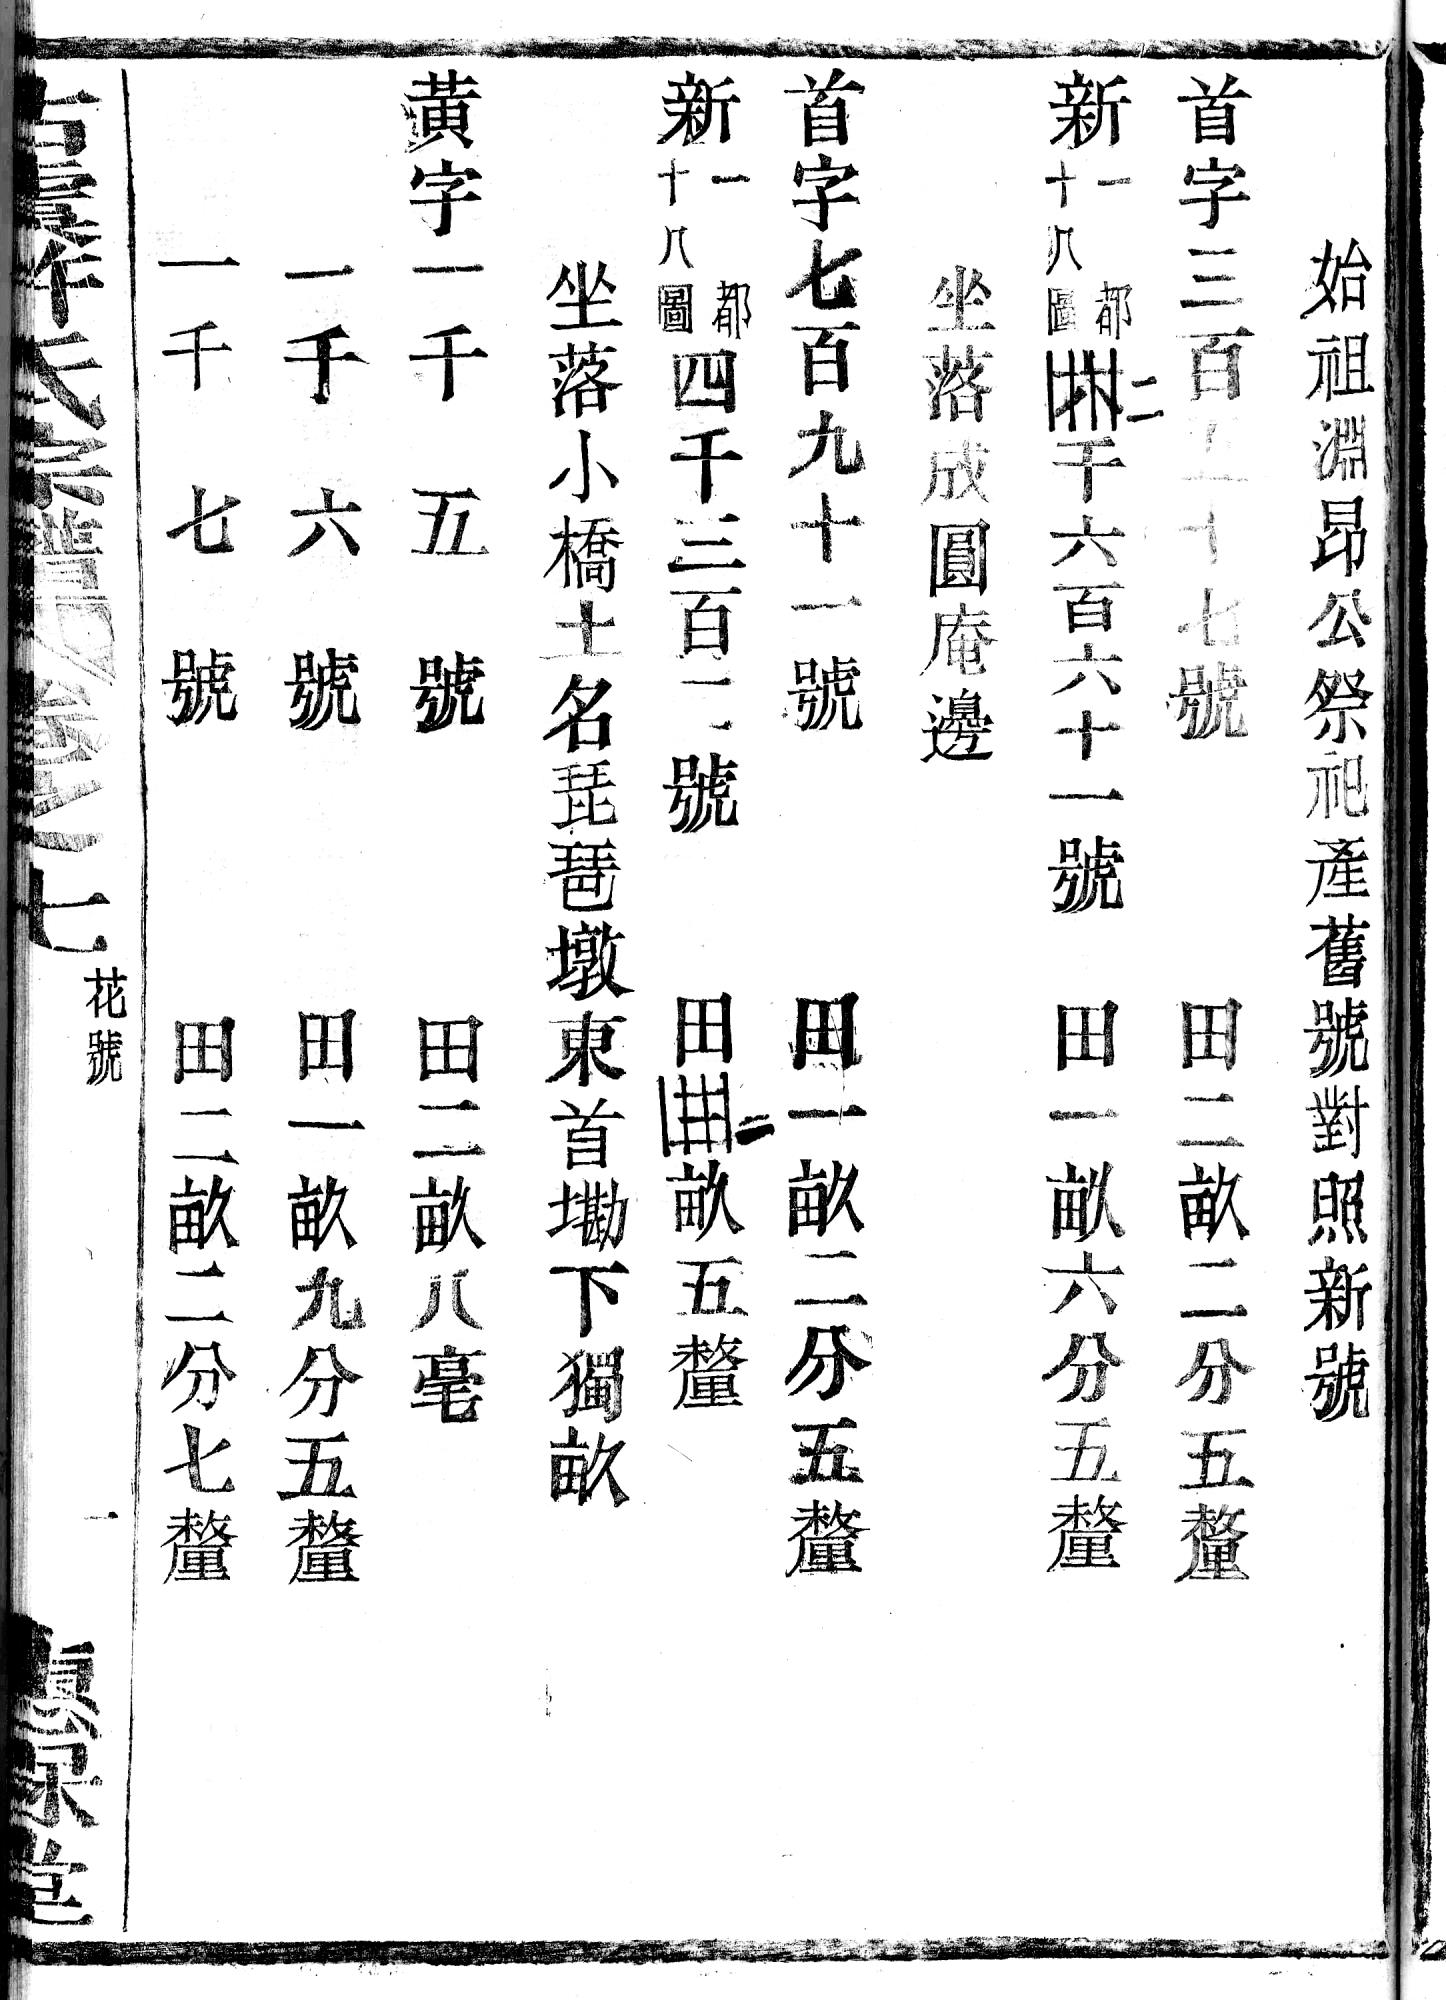 始祖淵昂公祭祀產舊號對照新號
首字三百五十七號 田二畝二分五釐
新一十八都圖二千六百六十一號 田一畝六分五釐
坐落成圓庵邊
首字七百九十一號 田一畝二分五釐
新一十八都圖四千三百二號 田二畝五釐
坐落小橋土名琵琶墩東首墈下獨畝
黃字一千五號 田二畝八毫
一千六號 田一畝九分五釐
一千七號 田二畝二分七釐
氏宗譜 卷七 花號 一 堂